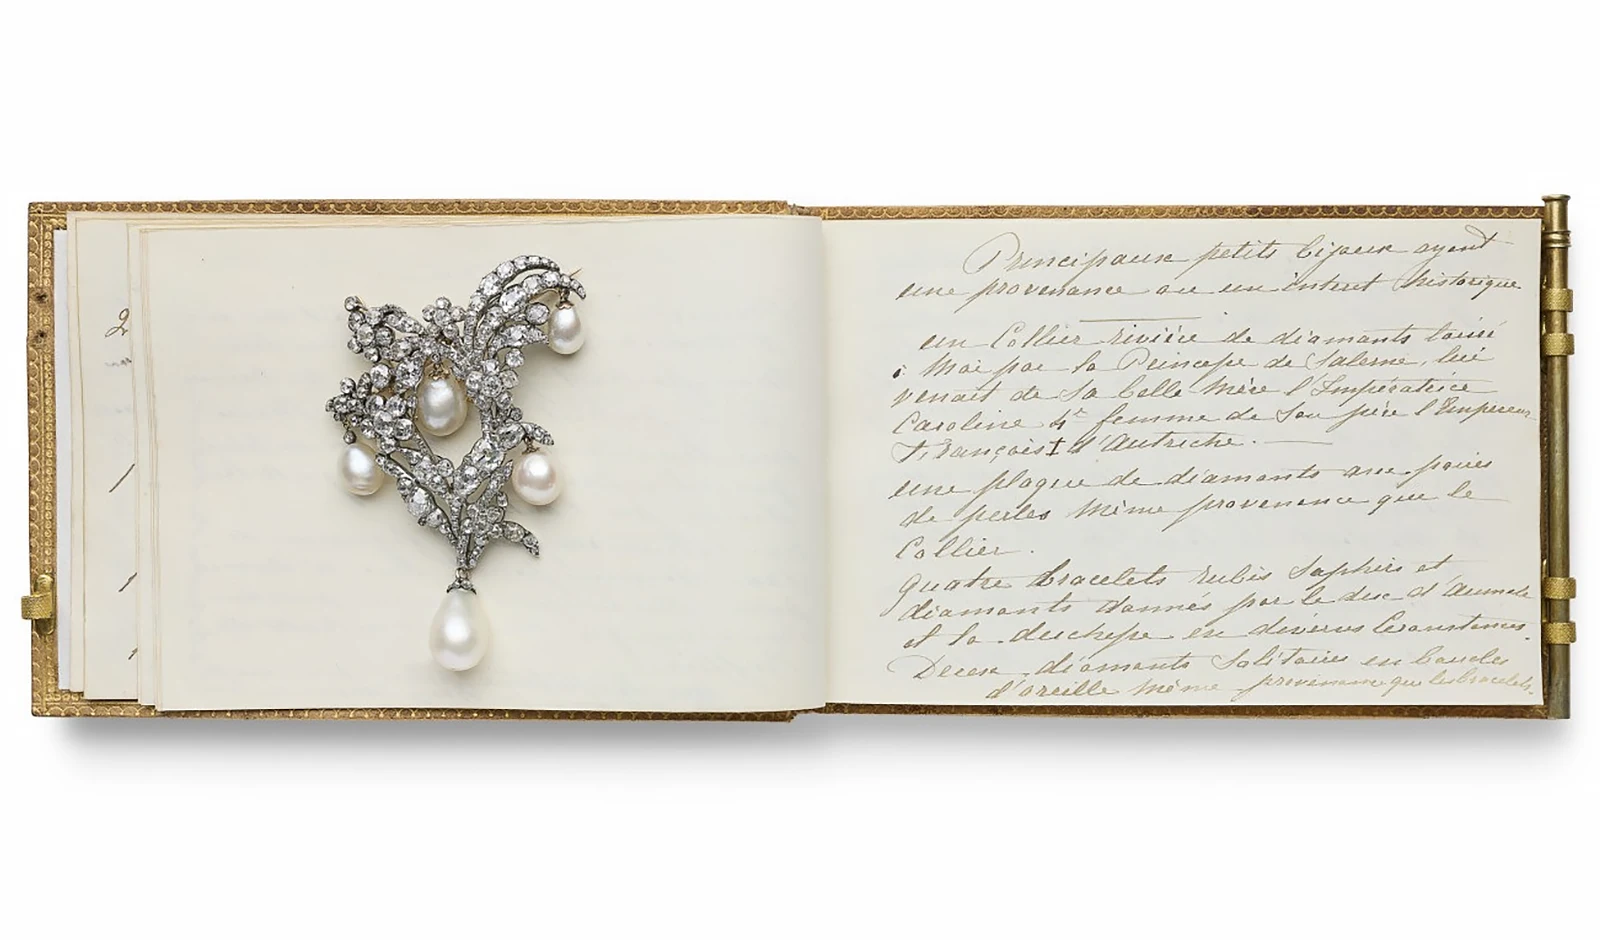 2
1
1
1
Principaux petits bijoux ayant
une provenance ou un interet historique
un Collier rivière de diamants laissé
à Moi par la Princesse de Salerne, lui
venait de Sa belle Mère l'Impératrice
Caroline 4e femme de Son père l'Empereur
François I d'Autriche.
une plaque de diamants avec poires
de perles Même provenance que le
Collier.
quatre bracelets rubis Saphirs et
diamants donnés par le duc d'Aumale
et la duchesse en diverses Circonstances.
Deux diamants Solitaires en boucles
d'oreille Même provenance que les bracelets.